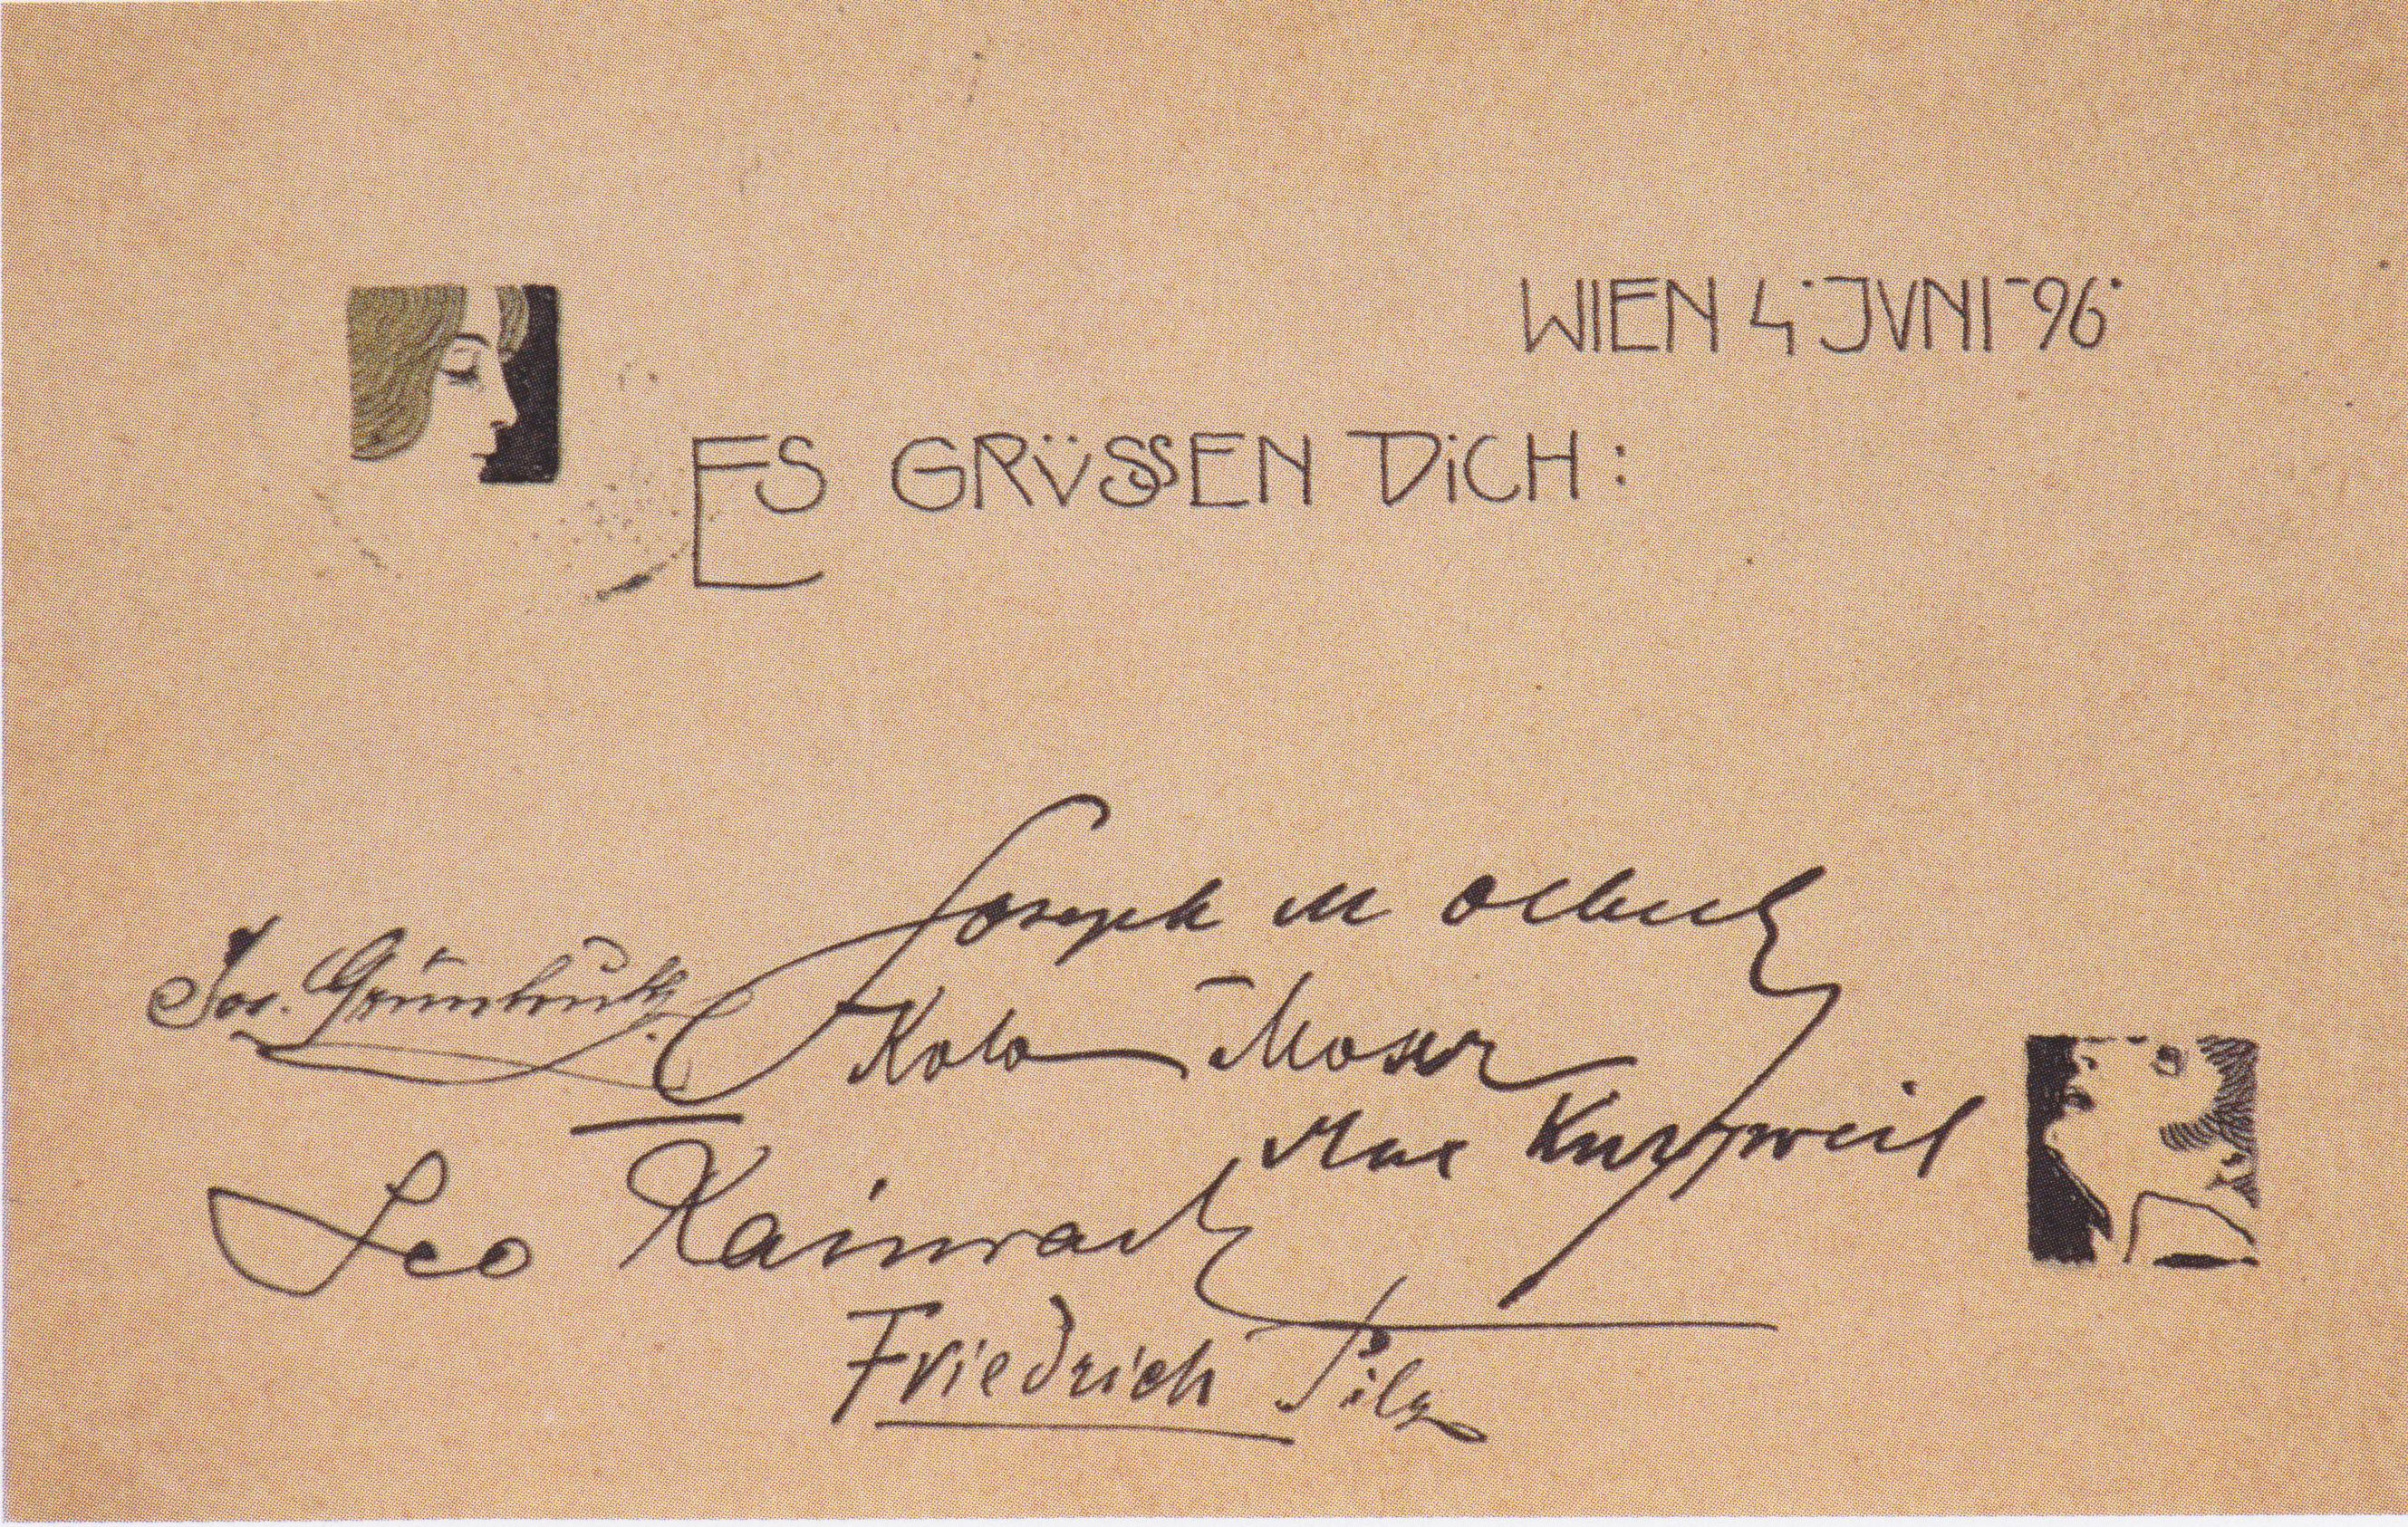 WIEN 4 JVNI 96
ES GRÜSSEN DICH:
Joseph M Olbrich
Jos.
Kolo Moser
Max Kurzweil
Leo Kainradl
Friedrich Pilz